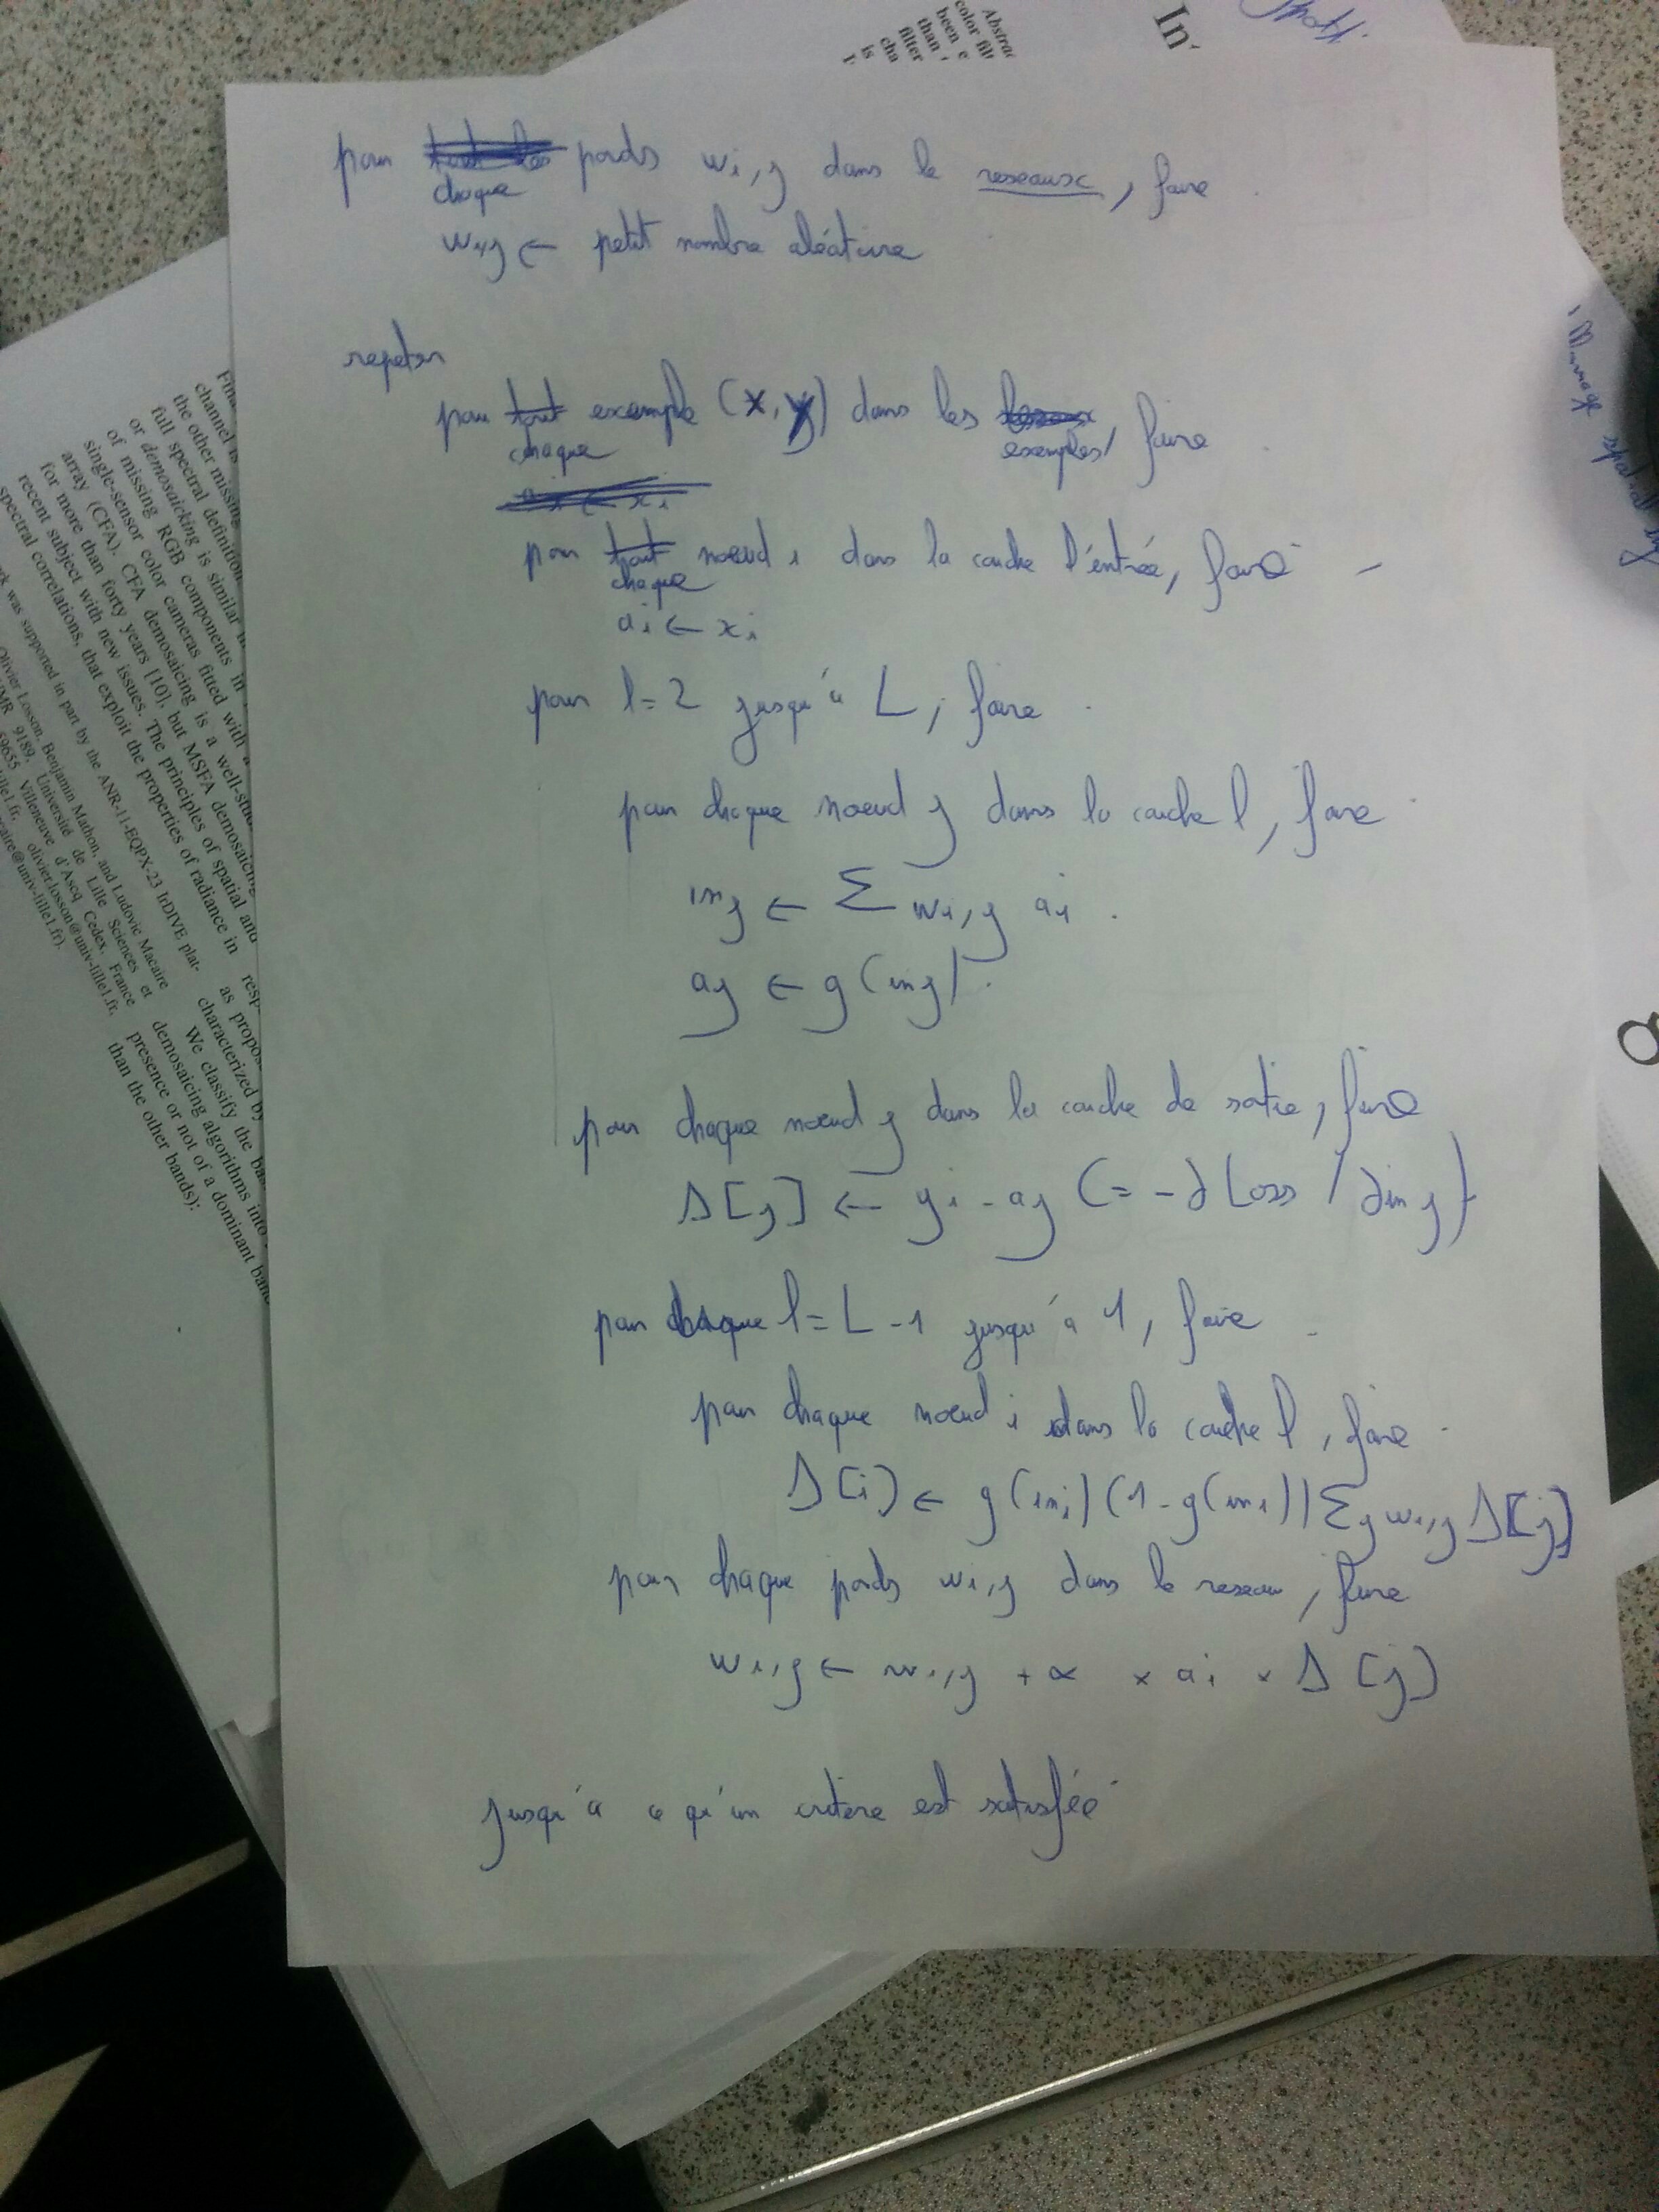 pour chaque poids wi,j dans le reseaux, faire
wi,j ← petit nombre aléatoire
repeter
pour chaque exemple (x, y) dans les exemples, faire
pour chaque noeud i dans la couche l'entrée, faire
ai ← xi
pour l=2 jusqu'à L, faire
pour chaque noeud j dans la couche l, faire
inj ← Σ wi,j ai
aj ← g(inj)
pour chaque noeud j dans la couche de sortie, faire
Δ[j] ← yi - aj (= -∂Loss/∂inj)
pour chaque l=L-1 jusqu'à 1, faire
pour chaque noeud i dans la couche l, faire
Δ[i] ← g(ini)(1-g(ini)) Σj wi,j Δ[j]
pour chaque poids wi,j dans le reseau, faire
wi,j ← wi,j + α × ai × Δ[j]
jusqu'à ce qu'un critère est satisfée
Abstrac
color filt
been e
than
filter
cha
is
In
channel is
the other missing
full spectral definition
or demosaicking is similar
of missing RGB components in
single-sensor color cameras fitted with a
array (CFA). CFA demosaicing is a well-stu
for more than forty years [10], but MSFA demosaicing
recent subject with new issues. The principles of spatial and
spectral correlations, that exploit the properties of radiance in
rk was supported in part by the ANR-11-EQPX-23 IrDIVE plat-
Olivier Losson, Benjamin Mathon, and Ludovic Macaire
MR 9189, Université de Lille Sciences et
59655 Villeneuve d'Ascq Cedex, France
lle1.fr, olivier.losson@univ-lille1.fr,
caire@univ-lille1.fr).
resp
as propos
characterized by
We classify the ba
demosaicing algorithms into
presence or not of a dominant band
than the other bands):